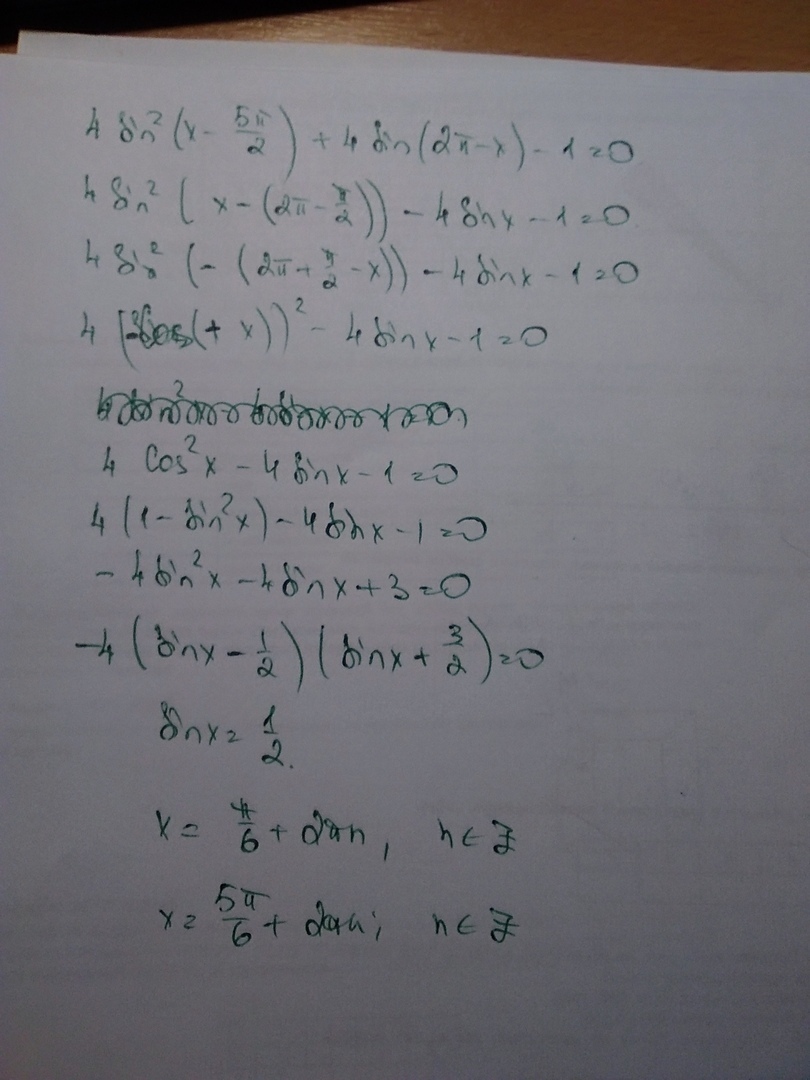 4 sin²(x - 5π/2) + 4 sin(2π - x) - 1 = 0
4 sin²(x - (2π - π/2)) - 4 sin x - 1 = 0
4 sin²(-(2π + π/2 - x)) - 4 sin x - 1 = 0
4 (-cos(+ x))² - 4 sin x - 1 = 0
4 cos²x - 4 sin x - 1 = 0
4 (1 - sin²x) - 4 sin x - 1 = 0
- 4 sin²x - 4 sin x + 3 = 0
-4 (sin x - 1/2)(sin x + 3/2) = 0
sin x = 1/2.
x = π/6 + 2πn, n ∈ Z
x = 5π/6 + 2πn; n ∈ Z